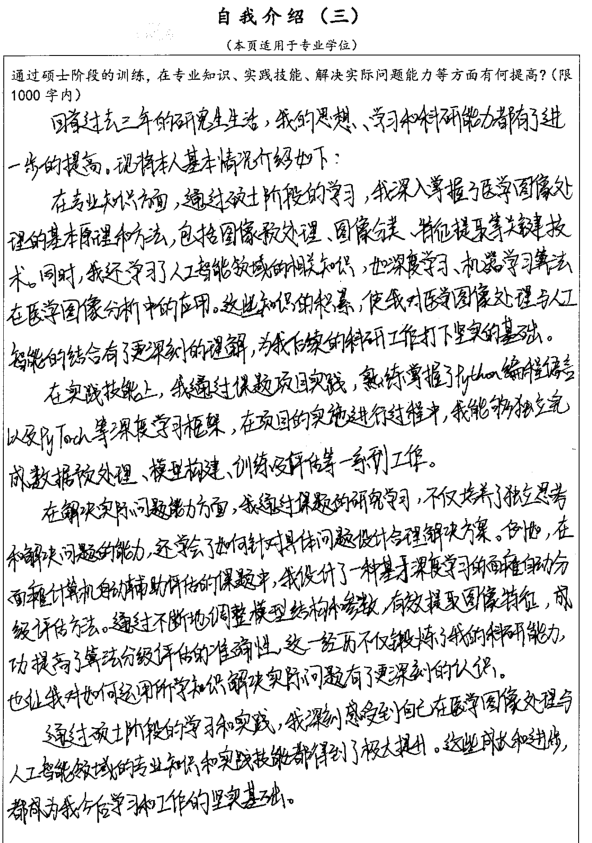 自我介绍（三）
（本页适用于专业学位）
通过硕士阶段的训练，在专业知识、实践技能、解决实际问题能力等方面有何提高？（限
1000字内）
回首过去三年的研究生生活，我的思想、学习和科研能力都有了进
一步的提高。现将本人基本情况介绍如下：
在专业知识方面，通过硕士阶段的学习，我深入掌握了医学图像处
理的基本原理和方法，包括图像预处理、图像分类、特征提取等关键技
术。同时，我还学习了人工智能领域的相关知识，如深度学习、机器学习算法
在医学图像分析中的应用。这些知识的积累，使我对医学图像处理与人工
智能的结合有了更深刻的理解，为我后续的科研工作打下坚实的基础。
在实践技能上，我通过课题项目实践，熟练掌握了Python编程语言
以及PyToch等深度学习框架，在项目的实施进行过程中，我能够独立完
成数据预处理、模型构建、训练及评估等一系列工作。
在解决实际问题能力方面，我通过课题的研究学习，不仅培养了独立思考
和解决问题的能力，还学会了如何针对具体问题设计合理解决方案。例如，在
面瘫计算机自动辅助评估的课题中，我设计了一种基于深度学习的面瘫自动分
级评估方法。通过不断地调整模型结构和参数，有效提取图像特征，成
功提高了算法分级评估的准确性。这一经历不仅锻炼了我的科研能力，
也让我对如何运用所学知识解决实际问题有了更深刻的认识。
通过硕士阶段的学习和实践，我深刻感受到自己在医学图像处理与
人工智能领域的专业知识和实践技能都得到了极大提升。这些成长和进步，
都成为我今后学习和工作的坚实基础。